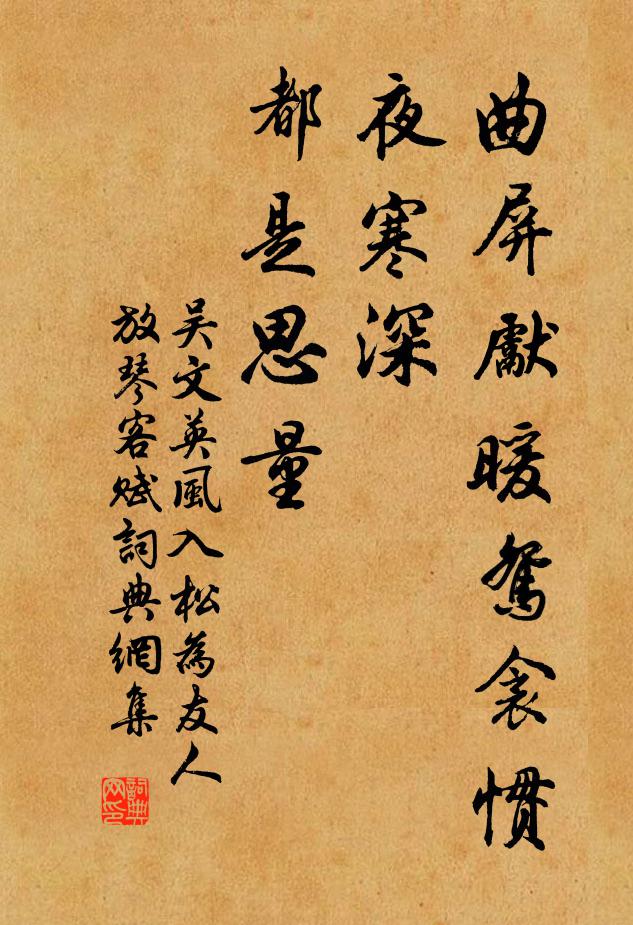 曲屏獻暖鴛衾慣
夜寒深
都是思量
吳文英風入松為友人
放琴客賦詞典網集
詞典网印